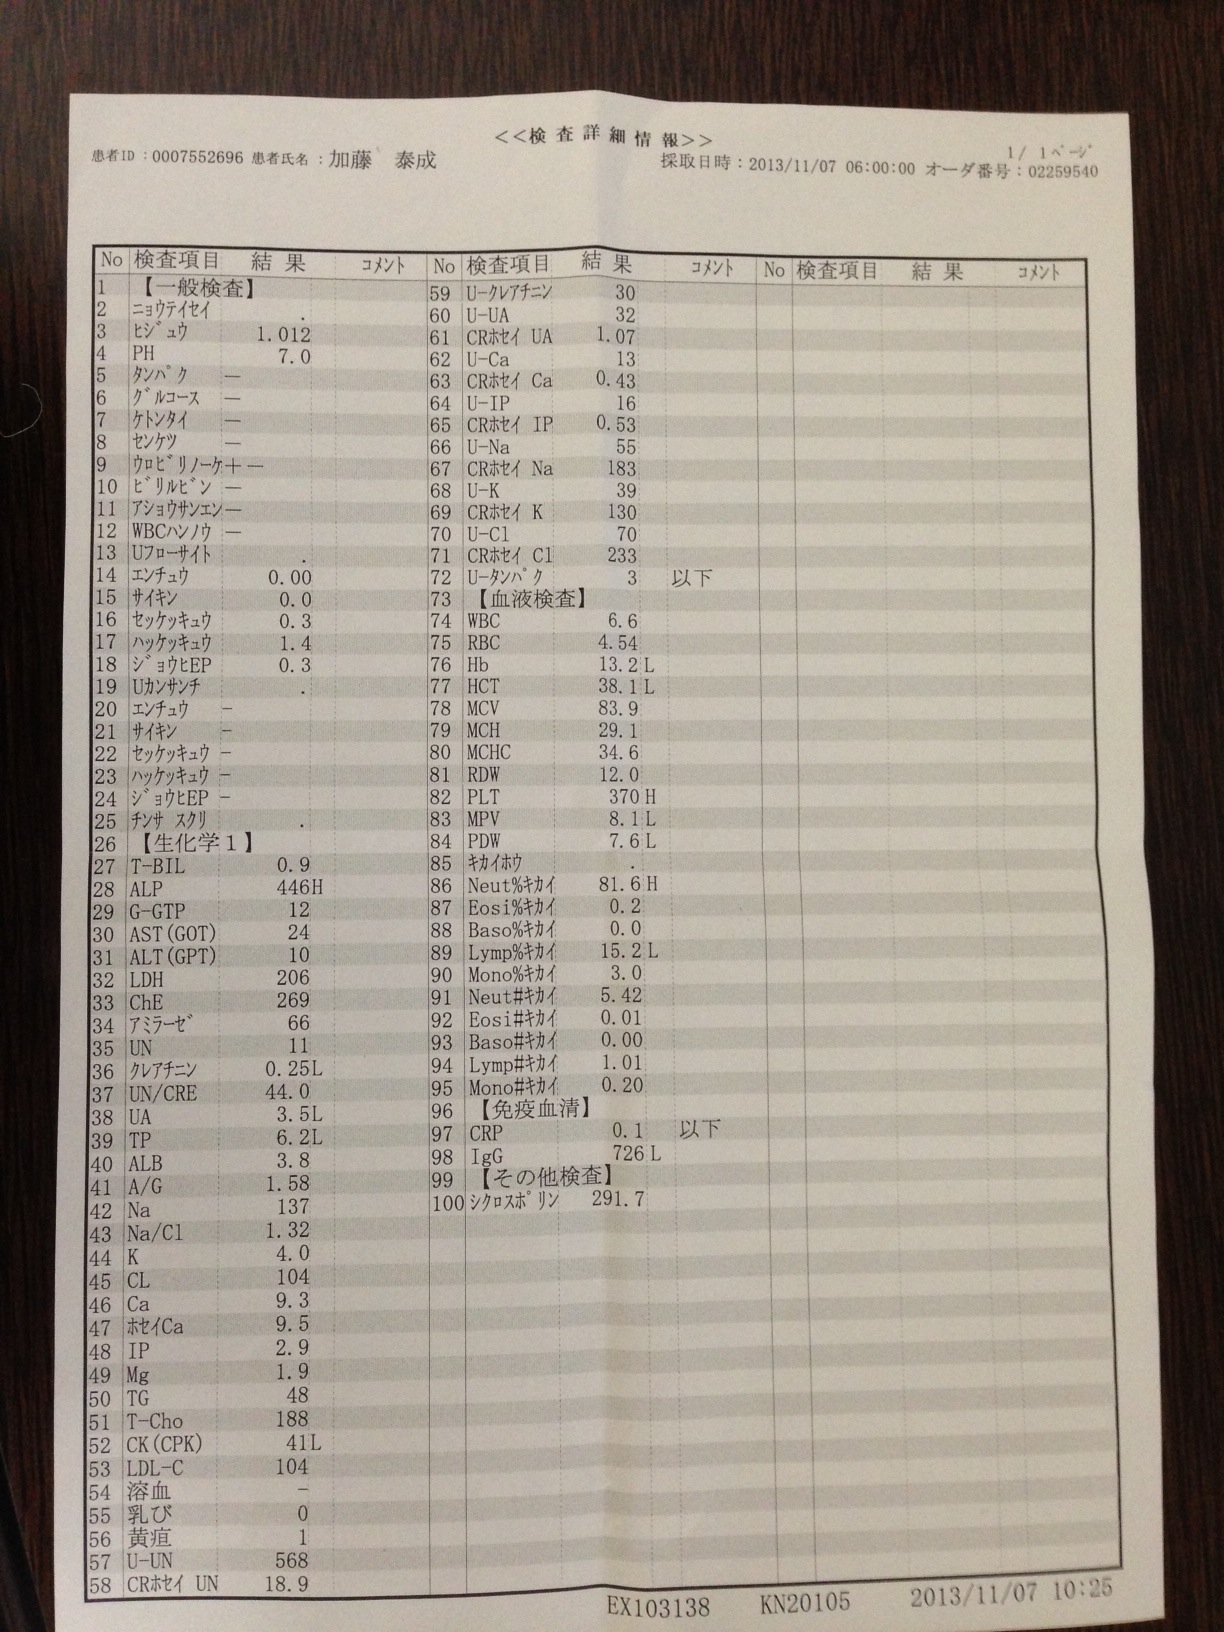 <<検査詳細情報>>
1/ 1ページ
患者ID：0007552696 患者氏名：加藤 泰成 採取日時：2013/11/07 06:00:00 オーダ番号：02259540
No 検査項目 結果 コメント No 検査項目 結果 コメント No 検査項目 結果 コメント
1 【一般検査】
2 ニョウテイセイ .
3 ヒジュウ 1.012
4 PH 7.0
5 タンパク －
6 グルコース －
7 ケトンタイ －
8 センケツ －
9 ウロビリノーケ＋－
10 ビリルビン －
11 アショウサンエン－
12 WBCハンノウ －
13 Uフローサイト .
14 エンチュウ 0.00
15 サイキン 0.0
16 セッケッキュウ 0.3
17 ハッケッキュウ 1.4
18 ジョウヒEP 0.3
19 Uカンサンチ .
20 エンチュウ -
21 サイキン -
22 セッケッキュウ -
23 ハッケッキュウ -
24 ジョウヒEP -
25 チンサ スクリ .
26 【生化学１】
27 T-BIL 0.9
28 ALP 446H
29 G-GTP 12
30 AST(GOT) 24
31 ALT(GPT) 10
32 LDH 206
33 ChE 269
34 アミラーゼ 66
35 UN 11
36 クレアチニン 0.25L
37 UN/CRE 44.0
38 UA 3.5L
39 TP 6.2L
40 ALB 3.8
41 A/G 1.58
42 Na 137
43 Na/Cl 1.32
44 K 4.0
45 CL 104
46 Ca 9.3
47 ホセイCa 9.5
48 IP 2.9
49 Mg 1.9
50 TG 48
51 T-Cho 188
52 CK(CPK) 41L
53 LDL-C 104
54 溶血 -
55 乳び 0
56 黄疸 1
57 U-UN 568
58 CRホセイ UN 18.9
59 U-クレアチニン 30
60 U-UA 32
61 CRホセイ UA 1.07
62 U-Ca 13
63 CRホセイ Ca 0.43
64 U-IP 16
65 CRホセイ IP 0.53
66 U-Na 55
67 CRホセイ Na 183
68 U-K 39
69 CRホセイ K 130
70 U-Cl 70
71 CRホセイ Cl 233
72 U-タンパク 3 以下
73 【血液検査】
74 WBC 6.6
75 RBC 4.54
76 Hb 13.2 L
77 HCT 38.1 L
78 MCV 83.9
79 MCH 29.1
80 MCHC 34.6
81 RDW 12.0
82 PLT 370 H
83 MPV 8.1 L
84 PDW 7.6 L
85 キカイホウ .
86 Neut%キカイ 81.6 H
87 Eosi%キカイ 0.2
88 Baso%キカイ 0.0
89 Lymp%キカイ 15.2 L
90 Mono%キカイ 3.0
91 Neut#キカイ 5.42
92 Eosi#キカイ 0.01
93 Baso#キカイ 0.00
94 Lymp#キカイ 1.01
95 Mono#キカイ 0.20
96 【免疫血清】
97 CRP 0.1 以下
98 IgG 726 L
99 【その他検査】
100 シクロスポリン 291.7
EX103138 KN20105 2013/11/07 10:25